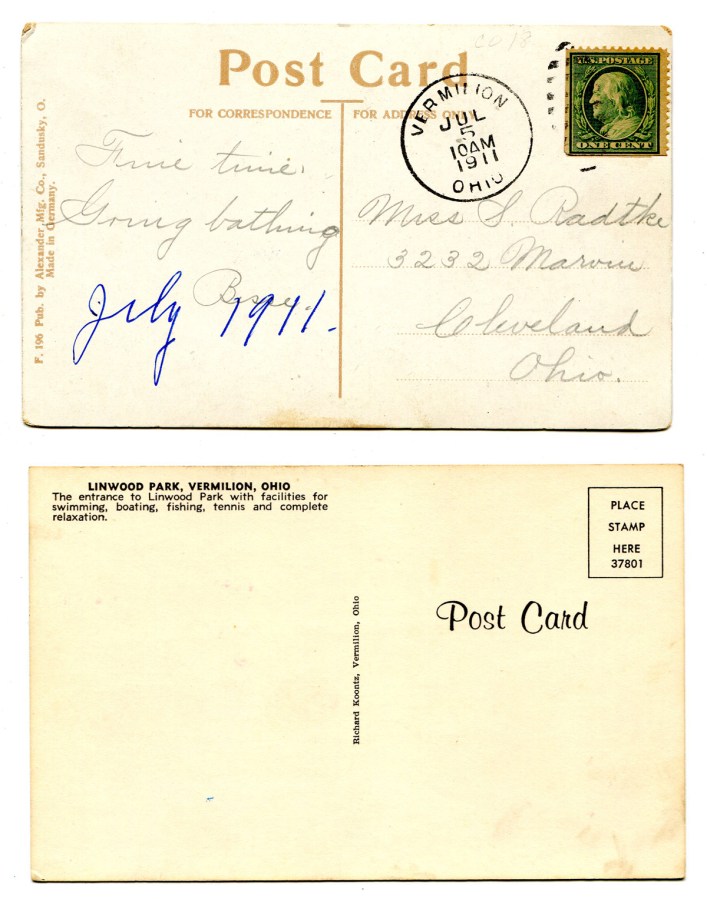 Post Card
FOR CORRESPONDENCE
FOR ADDRESS ONLY
VERMILION
JUL
5
10AM
1911
OHIO
U.S. POSTAGE
ONE CENT
Fine time.
Going bathing
July 1911.
Miss S. Radtke
3232 Marvin
Cleveland
Ohio.
F. 196 Pub. by Alexander Mfg. Co., Sandusky, O.
Made in Germany.
LINWOOD PARK, VERMILION, OHIO
The entrance to Linwood Park with facilities for
swimming, boating, fishing, tennis and complete
relaxation.
PLACE
STAMP
HERE
37801
Post Card
Richard Koontz, Vermilion, Ohio